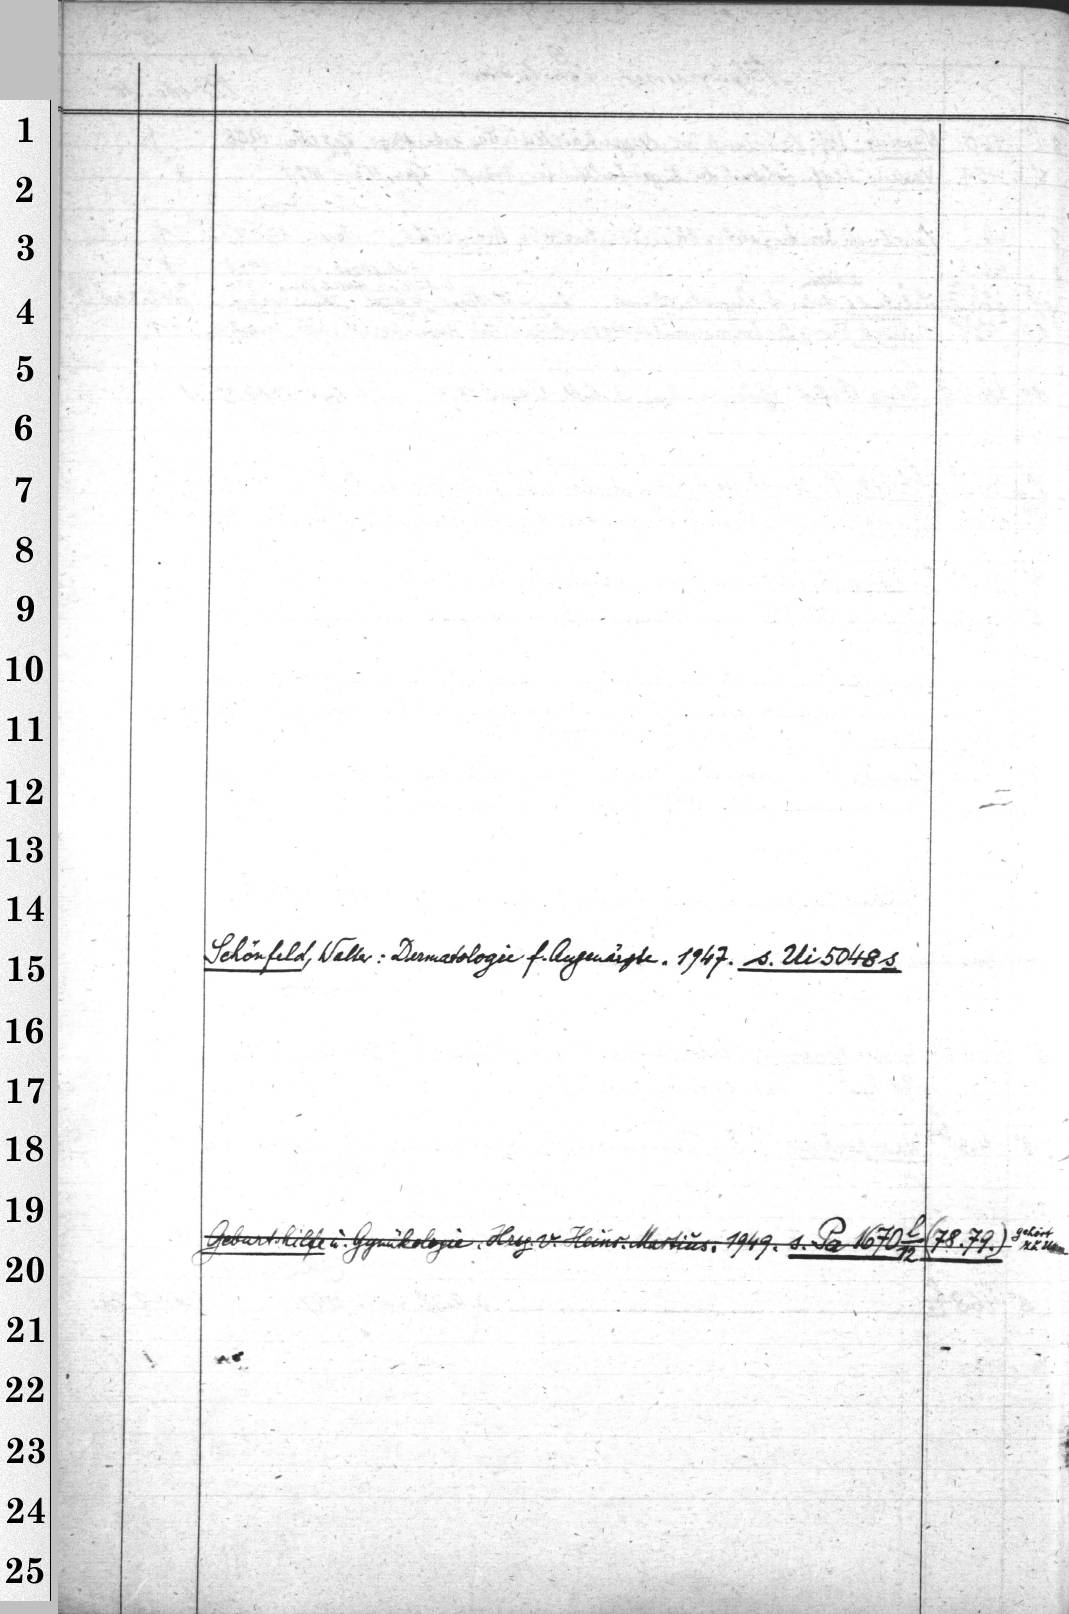 1
2
3
4
5
6
7
8
9
10
11
12
13
14
Schönfeld, Walter: Dermatologie f. Augenärzte. 1947. s. Ui 5048 s
15
16
17
18
19
Geburtshilfe u. Gynäkologie. Hrsg. v. Heinr. Martius. 1949. s. Pa 1670 l/12 (78.79.) gehört
20
21
22
23
24
25